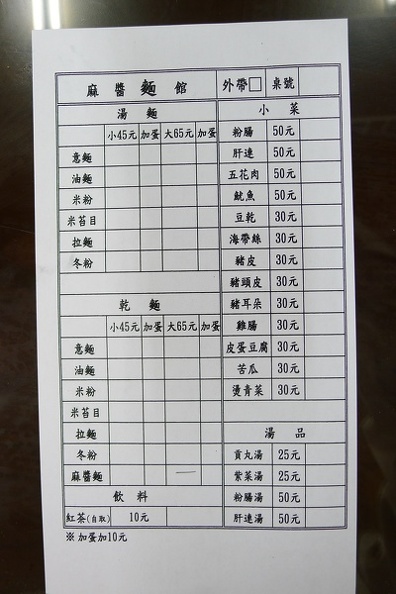 麻醬麵館 外帶□ 桌號
湯麵
小45元 加蛋 大65元 加蛋
意麵
油麵
米粉
米苔目
拉麵
冬粉
乾麵
小45元 加蛋 大65元 加蛋
意麵
油麵
米粉
米苔目
拉麵
冬粉
麻醬麵 —
飲料
紅茶(自取) 10元
小菜
粉腸 50元
肝連 50元
五花肉 50元
魷魚 50元
豆乾 30元
海帶絲 30元
豬皮 30元
豬頭皮 30元
豬耳朵 30元
雞腸 30元
皮蛋豆腐 30元
苦瓜 30元
燙青菜 30元
湯品
貢丸湯 25元
紫菜湯 25元
粉腸湯 50元
肝連湯 50元
※加蛋加10元